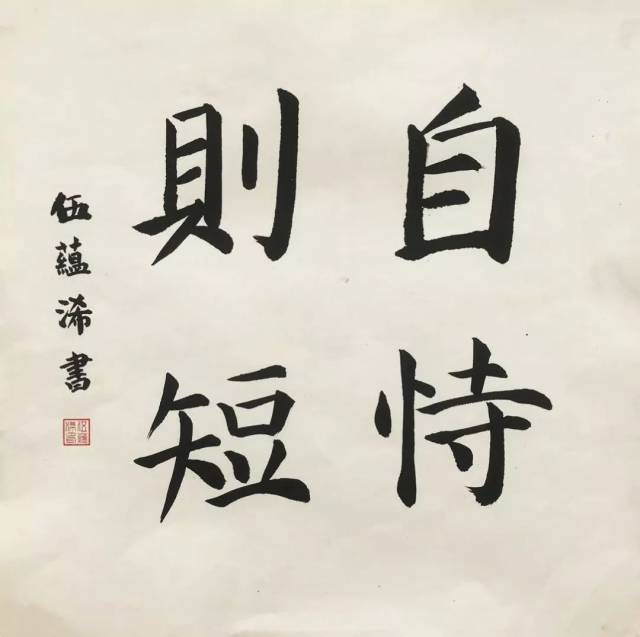 自恃
則短
伍蘊浠書